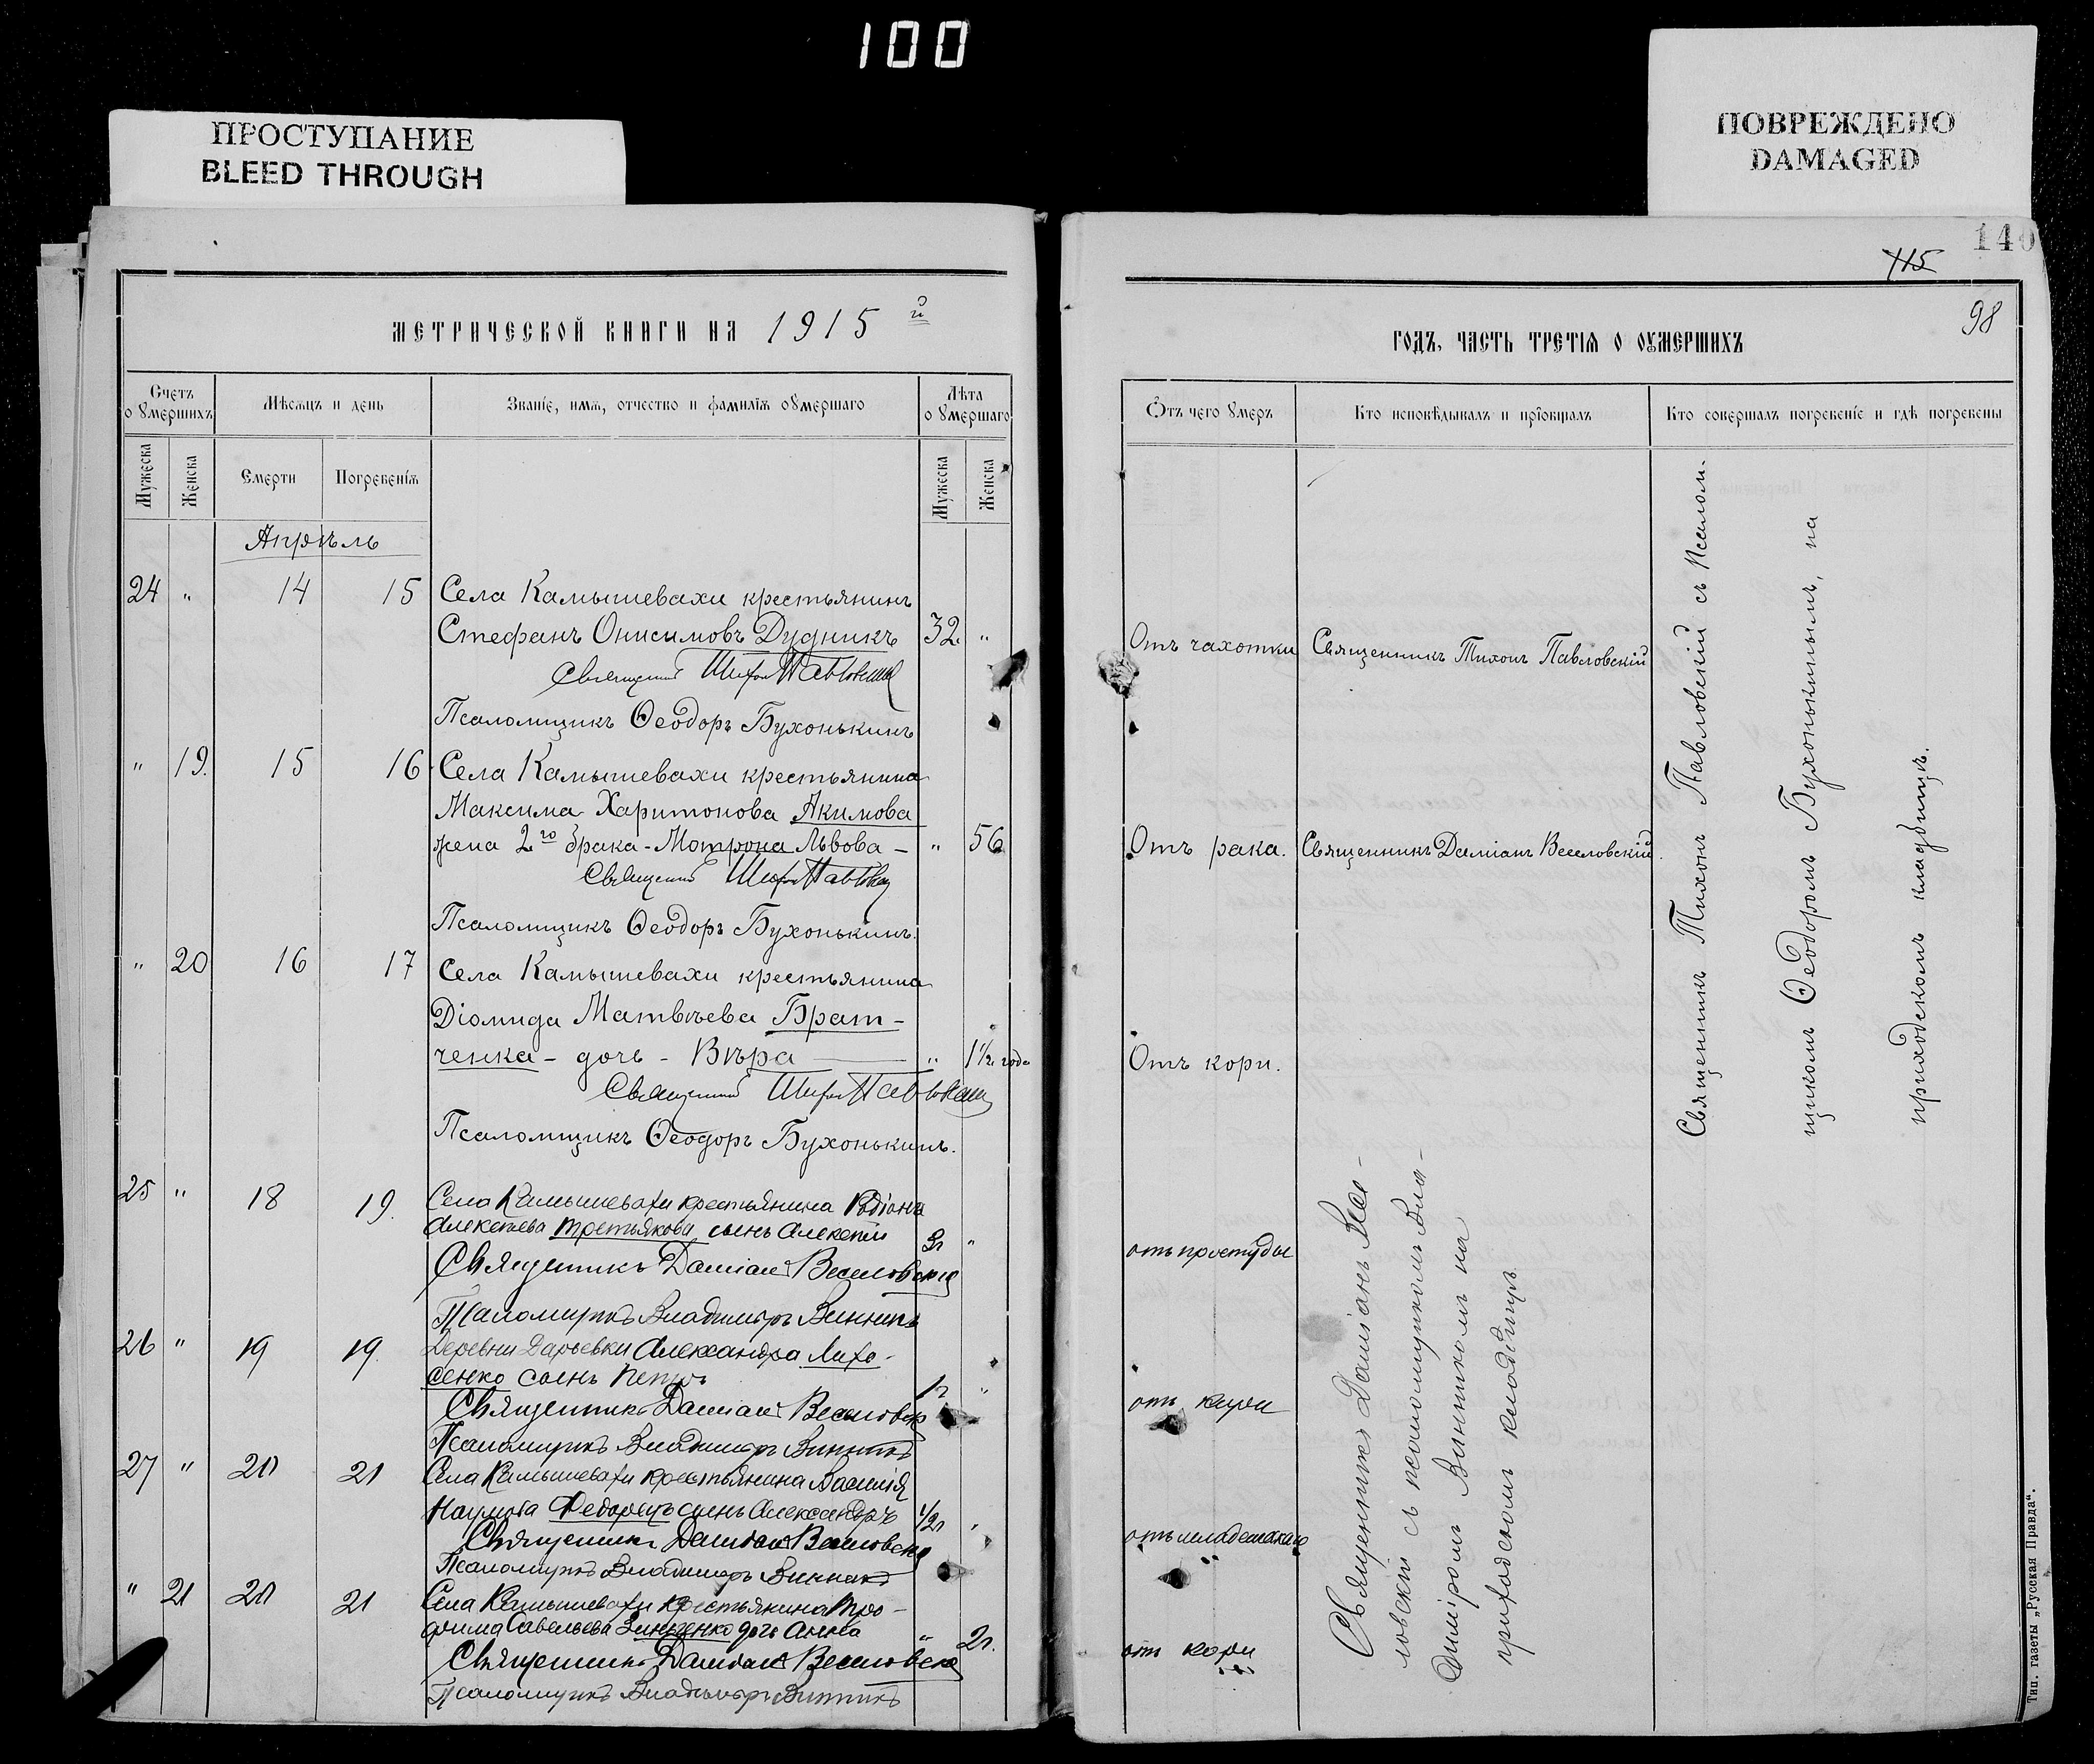 100
ПРОСТУПАНИЕ
BLEED THROUGH
ПОВРЕЖДЕНО
DAMAGED
140
115
98
МЕТРИЧЕСКОЙ КНИГИ НА 1915 й
Счетъ оумершихъ
Мѣсяцъ и день
Званіе, имя, отчество и фамилія оумершаго
Лѣта оумершаго
Мужеска
Женска
Смерти
Погребенія
Мужеска
Женска
Апрѣль
24 " 14 15 Села Камышевахи крестьянинъ
Стефанъ Онисимовъ Дудникъ 32. "
Священникъ Тихонъ Павловскій
Псаломщикъ Ѳеодоръ Бухонькинъ
" 19. 15 16 Села Камышевахи крестьянина
Максима Харитонова Акимова
жена 2го брака - Мотрона Львова - " 56
Священникъ Тихонъ Павловскій
Псаломщикъ Ѳеодоръ Бухонькинъ.
" 20 16 17 Села Камышевахи крестьянина
Діомида Матвѣева Брат-
ченка - дочь - Вѣра " 1½ года
Священникъ Тихонъ Павловскій
Псаломщикъ Ѳеодоръ Бухонькинъ.
25 " 18 19. Села Камышевахи крестьянина Родіона
Алексѣева Третьякова сынъ Алексѣй 3г "
Священникъ Даміанъ Веселовскій
Псаломщикъ Владиміръ Винникъ
26 " 19 19. Деревни Дарьевки Александра Лихо-
сенко сынъ Петръ 1г "
Священникъ Даміанъ Веселовскій
Псаломщикъ Владиміръ Винникъ
27 " 20 21 Села Камышевахи крестьянина Василія
Наумова Федорецъ сынъ Александръ ½г "
Священникъ Даміанъ Веселовскій
Псаломщикъ Владиміръ Винникъ
" 21 20 21 Села Камышевахи крестьянина Тро-
фима Савельева Зинченко дочь Анна " 2г.
Священникъ Даміанъ Веселовскій
Псаломщикъ Владиміръ Винникъ
ГОДЪ, ЧАСТЬ ТРЕТІЯ О ОУМЕРШИХЪ
Отъ чего умеръ
Кто исповѣдывалъ и пріобщалъ
Кто совершалъ погребеніе и гдѣ погребены
Отъ чахотки Священникъ Тихонъ Павловскій
Отъ рака. Священникъ Даміанъ Веселовскій.
Отъ кори.
отъ простуды
отъ кори
отъ младенческаго
отъ кори
Священникъ Тихонъ Павловскій съ Псалом-
щикомъ Ѳеодоромъ Бухонькинымъ, на
приходскомъ кладбищѣ.
Священникъ Даміанъ Весе-
ловскій съ псаломщикомъ Вла-
диміромъ Винникомъ на
приходскомъ кладбищѣ
Тип. газеты „Русская Правда“.